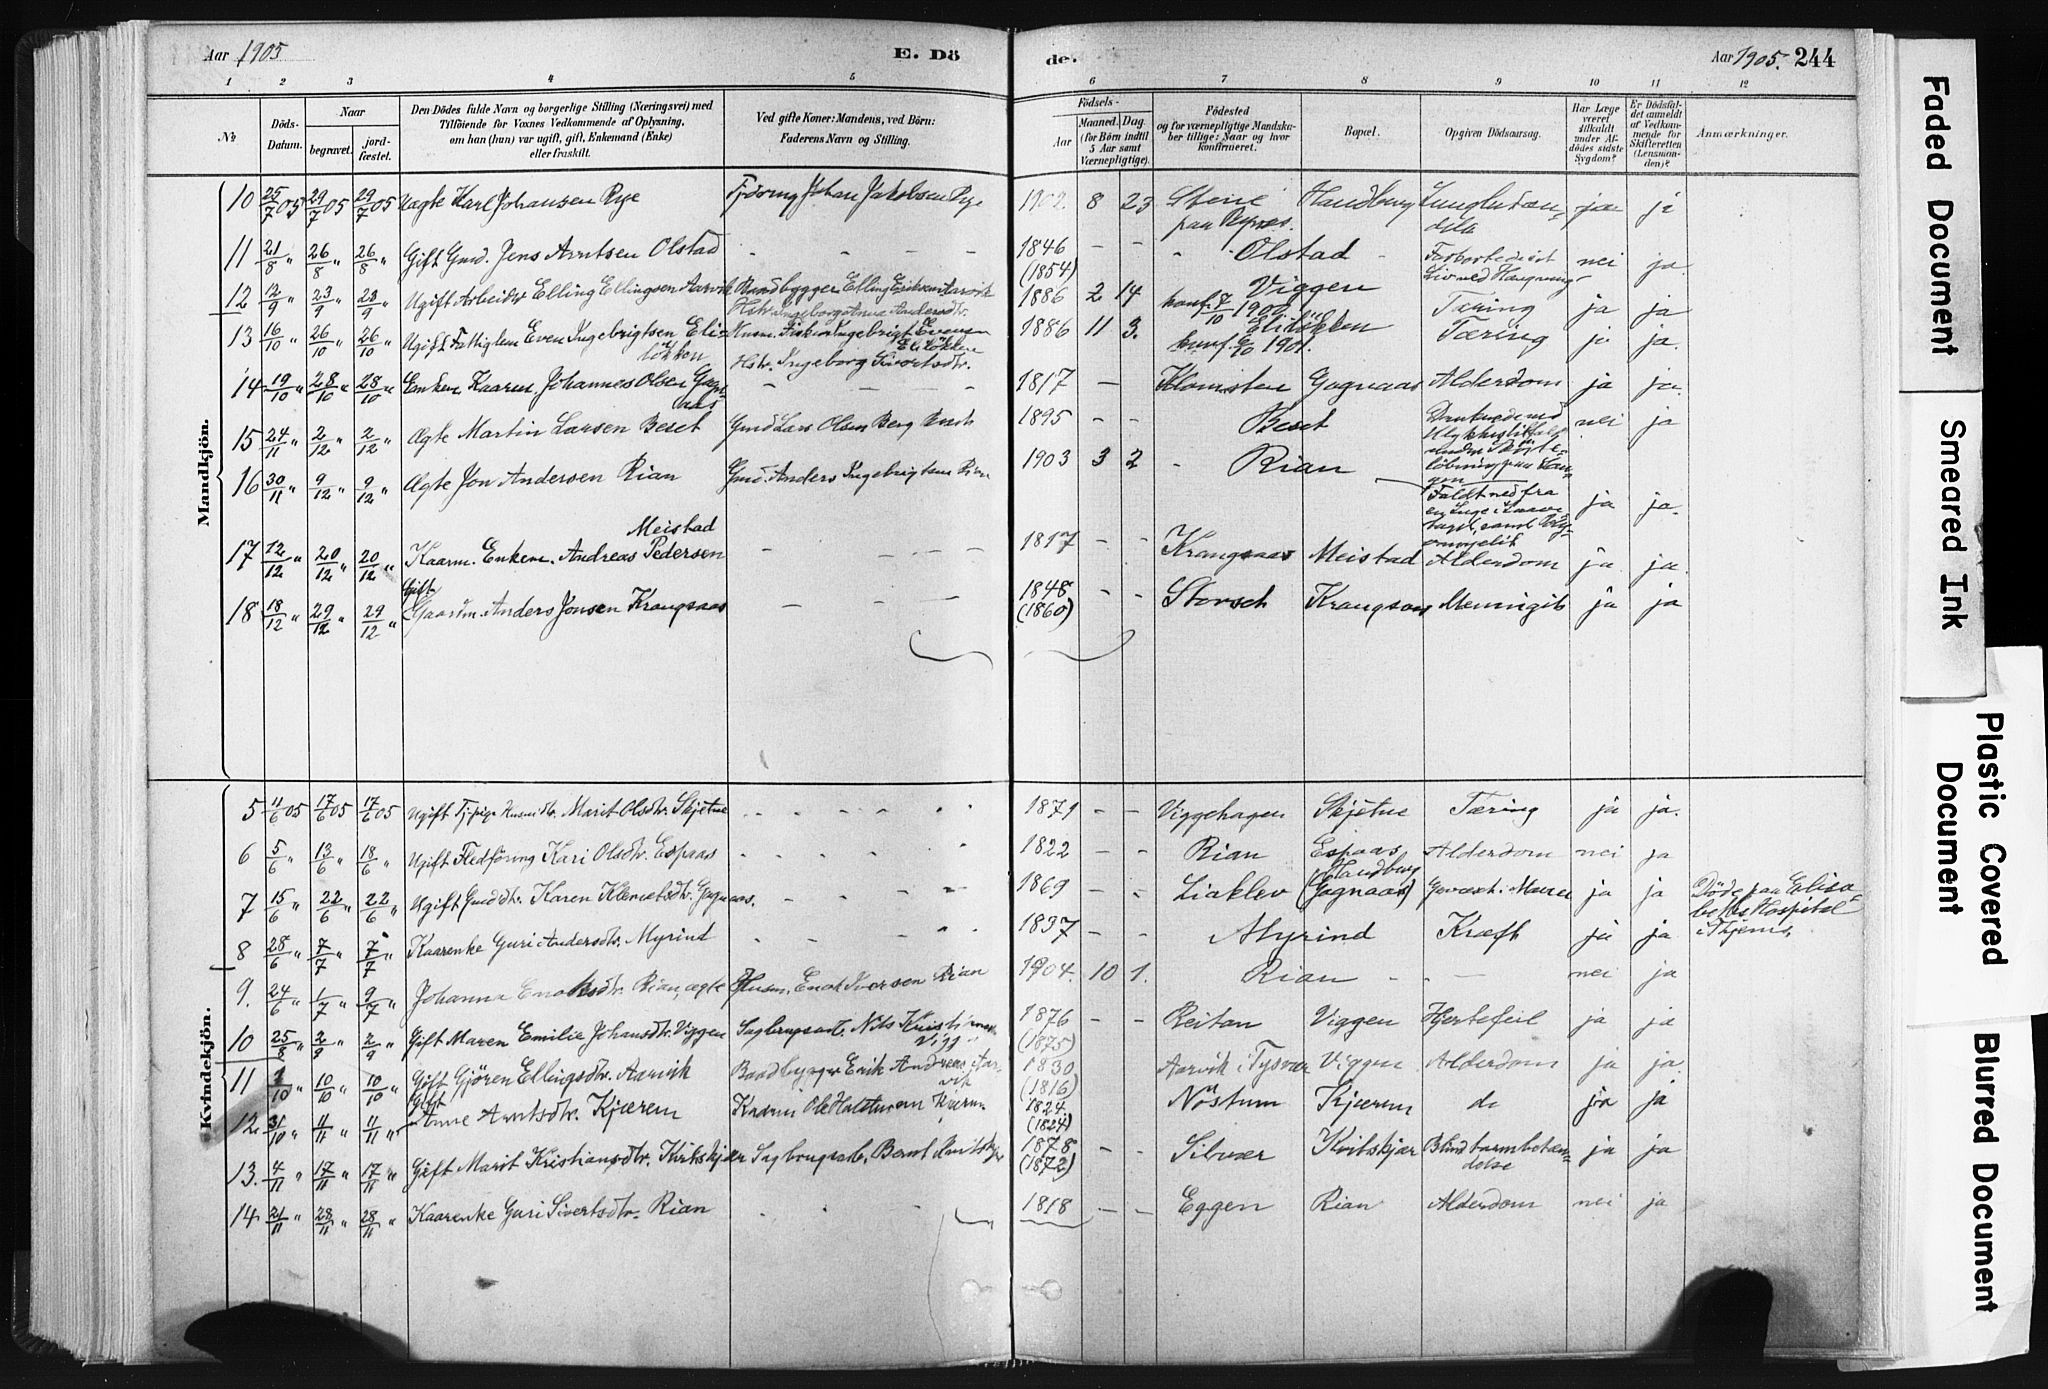 Aar 1905
E. Dö
de.
Aar 1905. 244
1 2 3 4 5 6 7 8 9 10 11 12
No
Döds-Datum.
Naar
begravet.
jord-fæstet.
Den Dödes fulde Navn og borgerlige Stilling (Næringsvei) med
Tilföiende for Voxnes Vedkommende af Oplysning,
om han (hun) var ugift, gift, Enkemand (Enke)
eller fraskilt.
Ved gifte Koner: Mandens, ved Börn:
Faderens Navn og Stilling.
Födsels-
Aar
Maaned. Dag.
(for Börn indtil
5 Aar samt
Værnepligtige).
Födested
og for værnepligtige Mandska-
ber tillige: Naar og hvor
konfirmeret.
Bopæl.
Opgiven Dödsaarsag.
Har Læge
været
tilkaldt
under Af-
dödes sidste
Sygdom?
Er Dödsfal-
det anmeldt
af Vedkom-
mende for
Skifteretten
(Lensman-
den)?
Anmærkninger.
Mandkjön.
10 25/7 05 29/7 05 29/7 05 Uægte Karl Johansen Rye Johan Jakobsen Rye 1902. 8 23 Handberg ja ja
11 21/8 " 26/8 " 26/8 " Gift Gmd. Jens Arntsen Olstad - - - 1846 (1854) - - - Olstad nei ja
12 12/9 " 23/9 " 23/9 " Ugift Arbeider Elling Ellingsen Aarvik Baadbygger Elling Eriksen Aarvik 1886 2 14 konf. 7/10 1900 Viggen Tæring ja ja
Hstr. Ingeborg Anna Andersdtr.
13 16/10 " 26/10 " 26/10 " Ugift Fattiglem Even Ingebrigtsen Eli-
lökken Husm. Fisker Ingebrigt Evensen Elilökken 1886 11 3. konf. 1901. Elilökken Tæring ja ja.
Hstr. Ingeborg Sivertsdtr.
14 19/10 " 28/10 " 28/10 " Enkem Kaarm. Johannes Olsen Gagn-
aas - - - 1817 - Klomsten Gagnaas Alderdom ja ja
15 24/11 " 2/12 " 2/12 " Ægte Martin Larsen Beset Gmd Lars Olsen Berg 1895 - - Beset Druknede ved
Ulykkestilfælde
under Skøite-
löbning paa nei ja
16 30/11 " 9/12 " 9/12 " Ægte Jon Andersen Rian Gmd. Anders Ingebrigtsen Rian 1903 3 2 - Rian Faldt ned fra
ja ja.
17 12/12 " 20/12 " 20/12 " Kaarm. Enkem. Andreas Pedersen Meistad - - - 1817 - - Krangsaas Meistad Alderdom ja ja.
18 18/12 " 29/12 " 29/12 " Gift Gaardm. Anders Jonsen Krangsaas - - - 1848 (1860) - - Storsch Krangsaas Meningit ja ja
Kvindekjön.
5 11/6 05 17/6 05 17/6 05 Ugift Marit Olsdtr. Skjetne 1871 - - Viggehagen Skjetne Tæring ja ja.
6 5/6 " 13/6 " 18/6 " Ugift Fledföring Kari Olsdtr. Espaas 1822 - - Rian Espaas Alderdom nei ja
7 15/6 " 22/6 " 22/6 " Ugift Gmdsdtr. Karen Klemetsdtr. Gagnaas. 1869 - - Liaklev Handberg (Gagnaas) Gevæxt i Maven ja ja Döde paa Elisa-
beths Hospital
i Thjem.
8 28/6 " 7/7 " 7/7 " Kaarenke Guri Andersdtr. Myrind 1837 - - Myrind Kræft ja ja
9. 24/6 " 1/7 " 9/7 " Johanna Enoksdtr. Rian, ægte Husm. Enok Iversen Rian 1904. 10 1. Rian - - nei ja
10 25/8 " 2/9 " 2/9 " Gift Maren Emilie Johansdtr. Viggen Sagbrugsarb. Nils Kristiansen
Viggen 1876 (1875) - - Reitan Viggen Hjertefeil ja ja
11 1/10 " 10/10 " 10/10 " Gift Gjören Ellingsdtr. Aarvik Baadbygger Erik Andreas. Aar-
vik 1830 (1816) Aarvik i Tysvær Viggen Alderdom ja ja.
12. 31/10 " 11/11 " 11/11 " Gift Anne Arntsdtr. Kjærem Kaarm Ole Kjærem 1824. (1824) Nöstum Kjærem do ja ja
13. 4/11 " 17/11 " 17/11 " Gift Marit Kristiansdtr. Kvitskjær Sagbrugsarb. Bernt Kvitskjær 1878 (1872) - - Silvær Kvitskjær Blindtarmbetæn-
delse ja ja
14. 21/11 " 28/11 " 28/11 " Kaarenke Guri Sivertsdtr. Rian 1818 - - Eggen Rian Alderdom nei ja
Faded Document
Smeared Ink
Plastic Covered
Document
Blurred Document